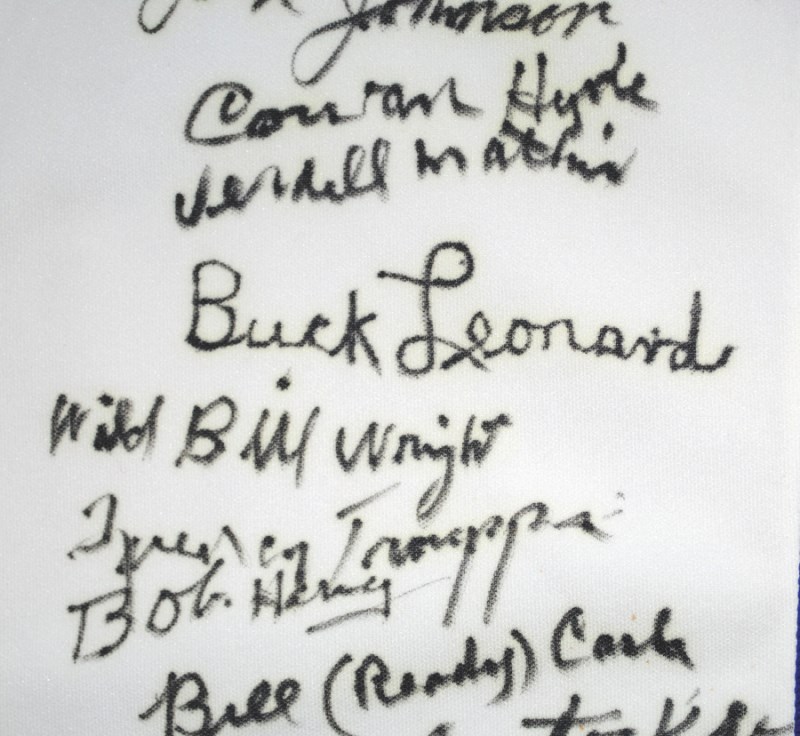 Johnson
Cowan Hyde
Verdell Mathis
Buck Leonard
Wild Bill Wright
Quincy Trouppe
Bob. Harvey
Bill (Ready) Cash